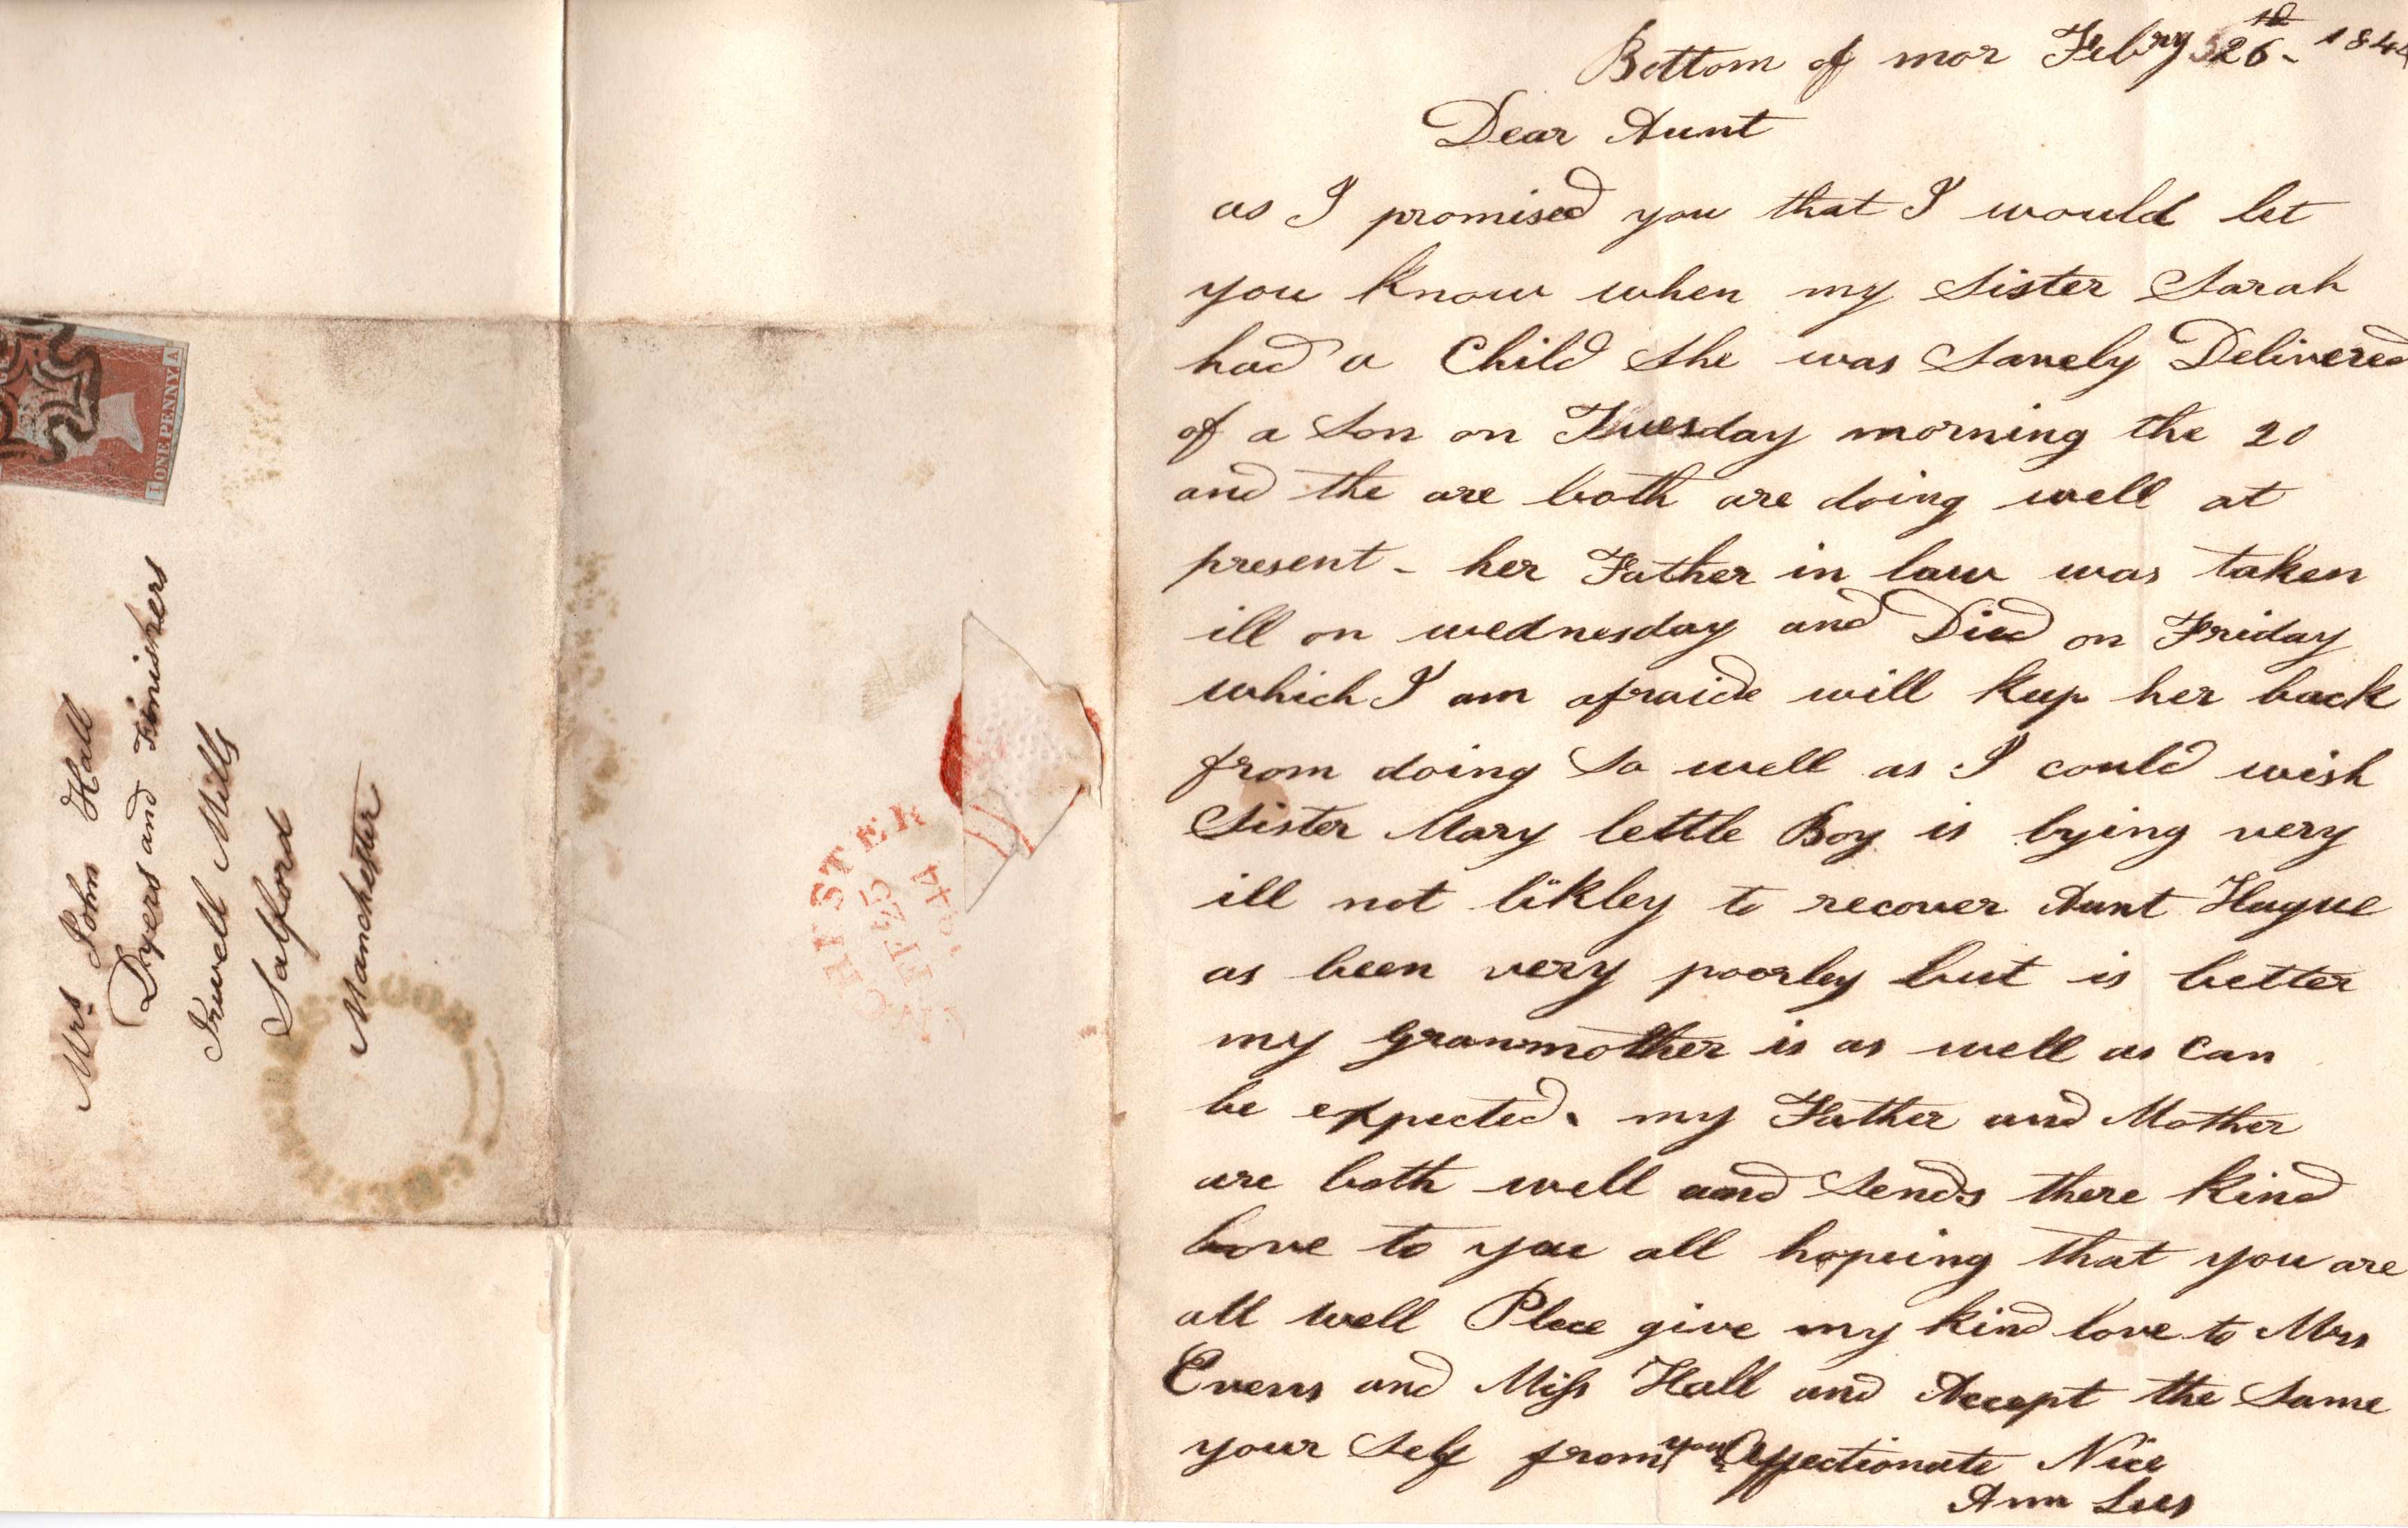 Bottom of mor Febry 26th 1844
Dear Aunt
as I promised you that I would let
you know when my Sister Sarah
had a Child She was Savely Delivered
of a Son on Tuesday morning the 20
and the are both are doing well at
present - her Father in law was taken
ill on wednesday and Died on Friday
which I am afraide will Kup her back
from doing So well as I could wish
Sister Mary lettle Boy is lying very
ill not likley to recover Aunt Hague
as been very poorley but is better
my granmother is as well as Can
be expected. my Father and Mother
are both well and Sends there Kind
Love to you all hopeing that you are
all well Plece give my Kind love to Mrs
Evens and Miss Hall and Accept the Same
your Self from your Affectionate Nice
Ann Lees
Mrs John Hall
Dyers and Finishers
Irwell Mills
Salford
Manchester
ONE PENNY
I
A
CHESTER
FE 25
1844